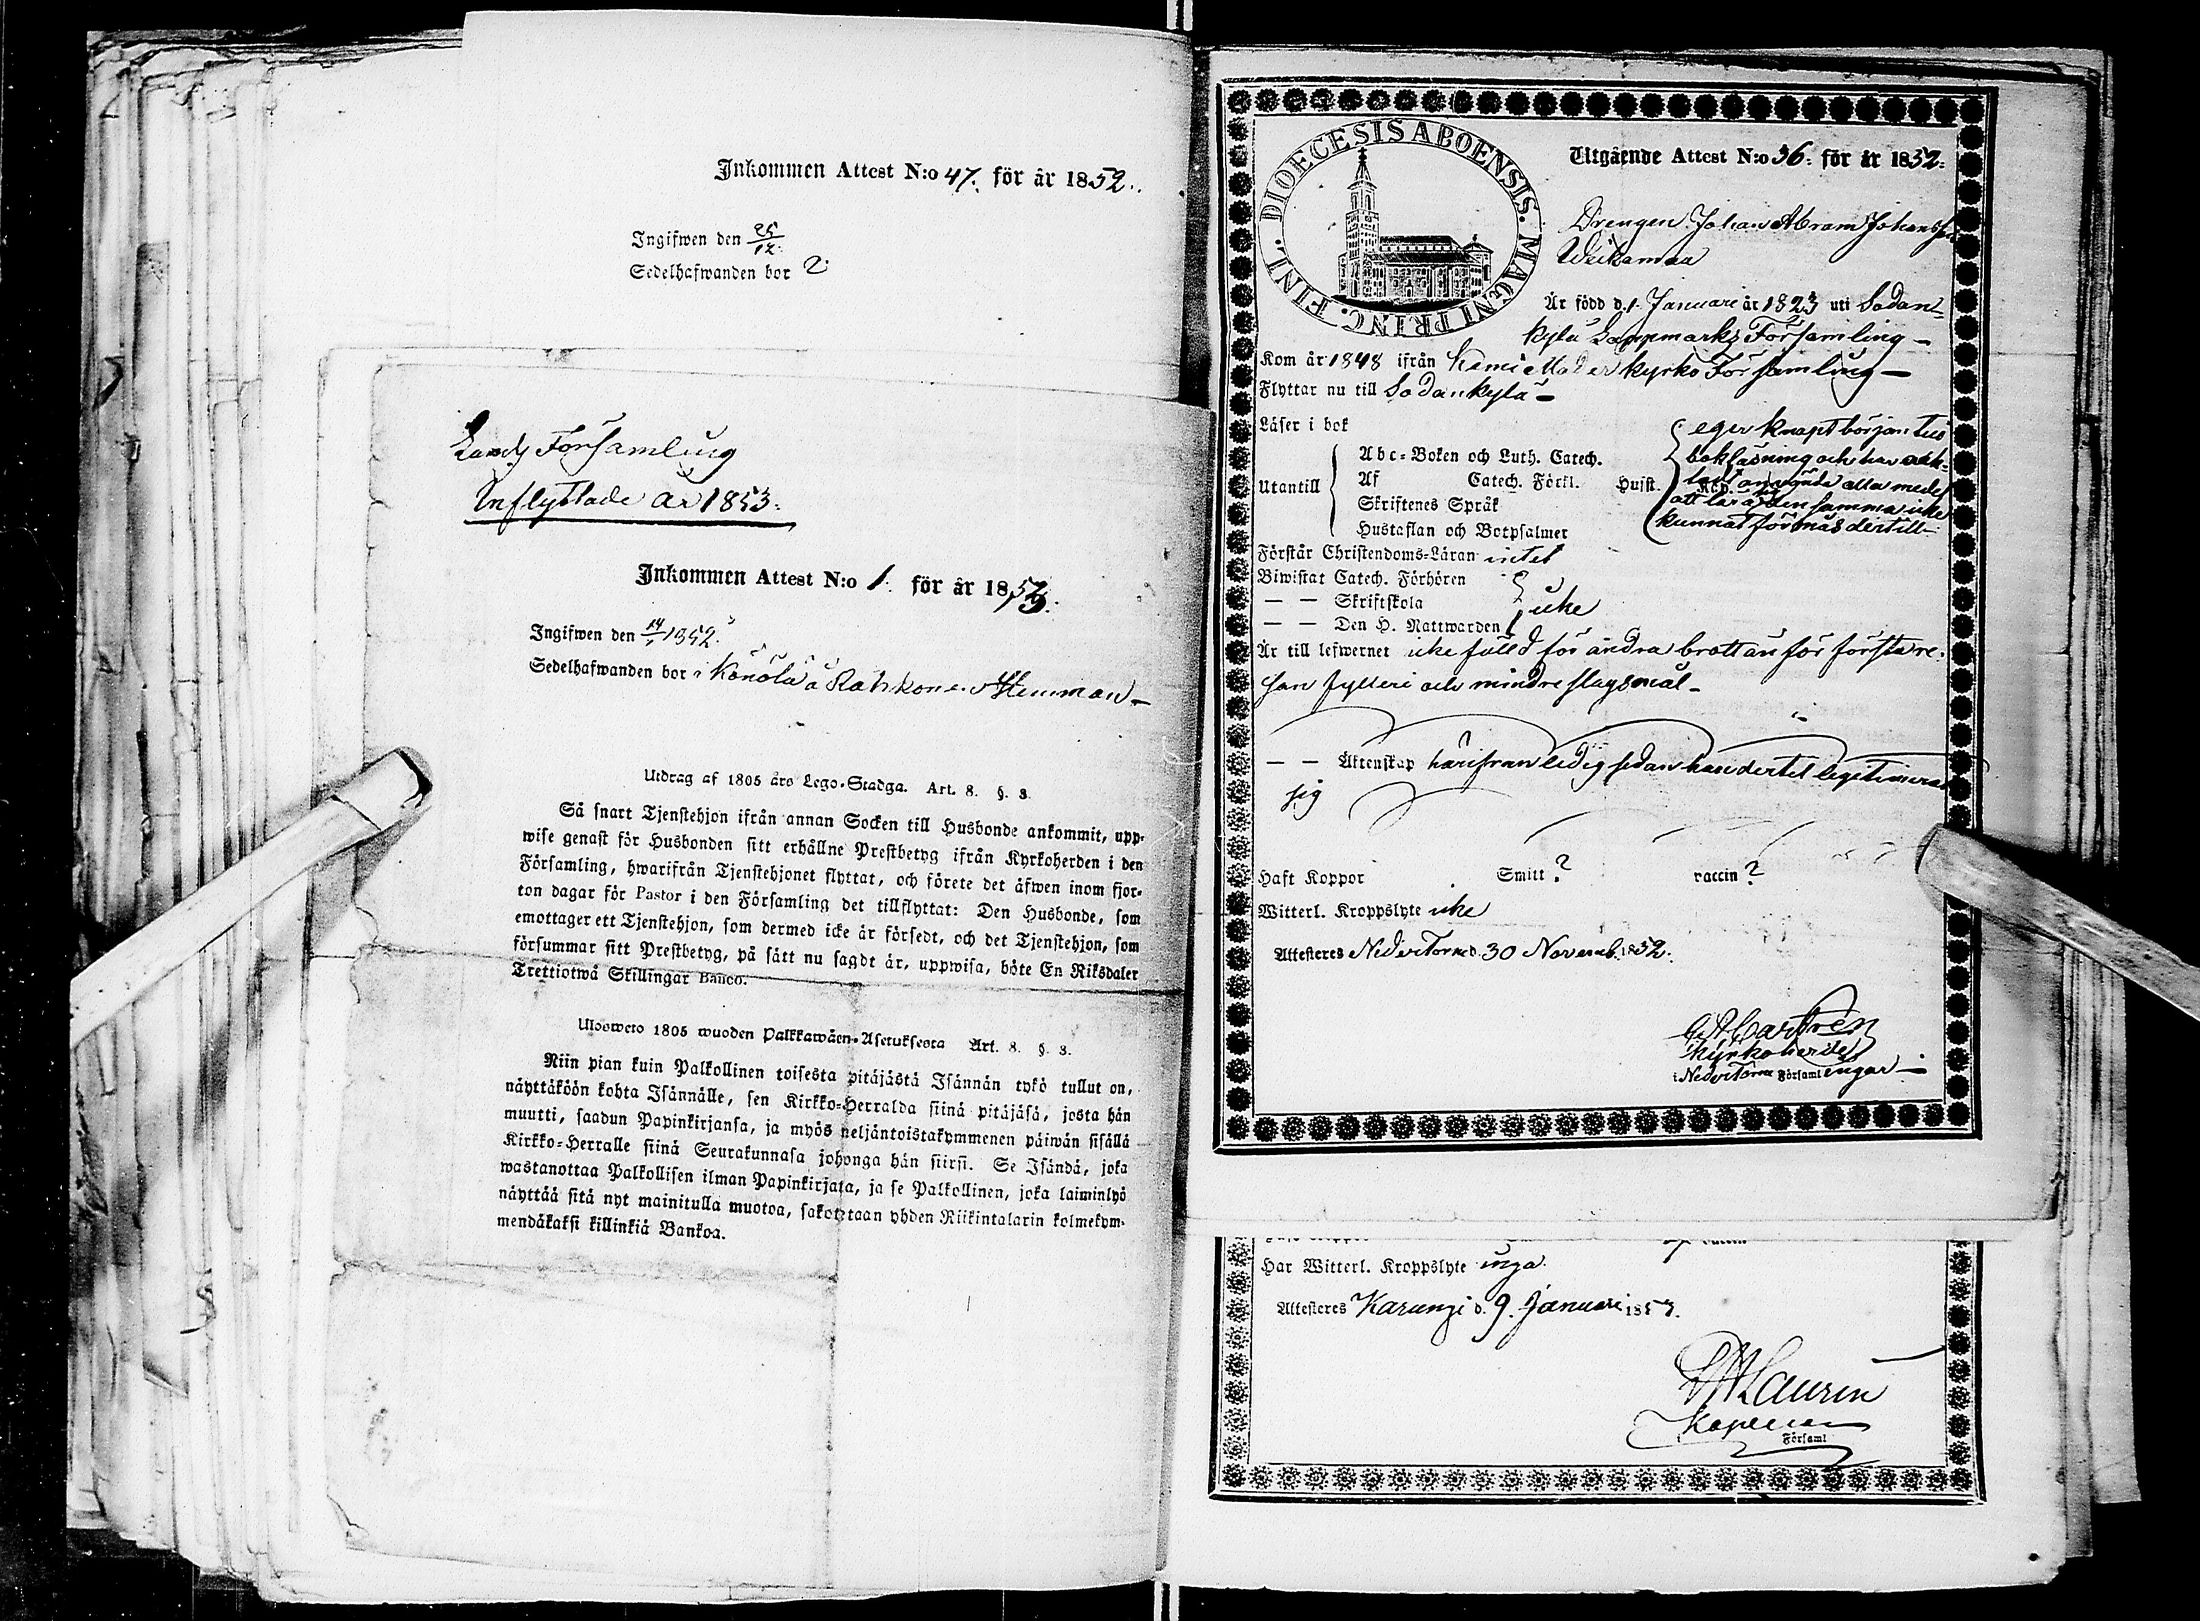 Inkommen Attest N:o 47. för år 1852.
Ingifwen den 25/12.
Sedelhafwanden bor ?
Lands Församling
Inflyttade År 1853.
Inkommen Attest N:o 1. för år 1853.
Ingifwen den 14/1 1852.
Sedelhafwanden bor i Könölä å Rahkonen Hemman –
Utdrag af 1805 års Lego-Stadga. Art. 8. §. 8.
Så snart Tjenstehjon ifrån annan Socken till Husbonde ankommit, upp-
wise genast för Husbonden sitt erhållne Prestbetyg ifrån Kyrkoherden i den
Församling, hwarifrån Tjenstehjonet flyttat, och förete det äfwen inom fjor-
ton dagar för Pastor i den Församling det tillflyttat: Den Husbonde, som
emottager ett Tjenstehjon, som dermed icke är försedt, och det Tjenstehjon, som
försummar sitt Prestbetyg, på sätt nu sagdt är, uppwisa, böte En Riksdaler
Trettiotwå Skillingar Banco.
Ulosweto 1805 wuoden Palkkawäen-Asetuksesta Art. 8. §. 8.
Niin pian kuin Palkollinen toisesta pitäjästä Isännän tykö tullut on,
näyttäköön kohta Isännälle, sen Kirkko-Herralda siinä pitäjäsä, josta hän
muutti, saadun Papinkirjansa, ja myös neljäntoistakymmenen päiwän sisällä
Kirkko-Herralle siinä Seurakunnasa johonga hän siirsi. Se Isändä, joka
wastanottaa Palkollisen ilman Papinkirjata, ja se Palkollinen, joka laiminlyö
näyttää sitä nyt mainitulla muotoa, sakotetaan yhden Riikintalarin kolmekym-
mendäkaksi killinkiä Bankoa.
DIOECESIS ABOENSIS. MAGNI PRINC. FINL.
Utgående Attest N:o 36. för år 1852.
Drengen Johan Abram Johansson
Weikamaa
Är född d. 1. Januari år 1823 uti Sodan-
kylä Lappmarks Församling –
Kom år 1848 ifrån Kemi Moderkyrko Församling –
Flyttar nu till Sodankylä –
Läser i bok eger knapt början till
Abc-Boken och Luth. Catech. bokläsning och har
Utantill Af Catech. Förkl. Husst. Kap.
Skriftenes Språk att lära den samma icke
Hustaflan och Botpsalmer kunnat förmås dertill –
Förstår Christendoms-Läran intet
Biwistat Catech. Förhören
— — Skriftskola icke
— — Den H. Nattwarden
Är till lefwernet icke fälld för andra brott än för första re-
san fylleri och mindre slagsmål –
— — Äktenskap härifrån ledig sedan han dertil legitimerat
sig
Haft Koppor Smitt ? vaccin ?
Witterl. Kroppslyte icke
Attesteres NederTorneå d. 30 Novemb. 1852.
Castrén
Kyrkoherde
i NederTorne Församlingar –
Har Witterl. Kroppslyte inga.
Attesteres Karungi d. 9. Januari 1853.
Laurin
Kapellan
Församl